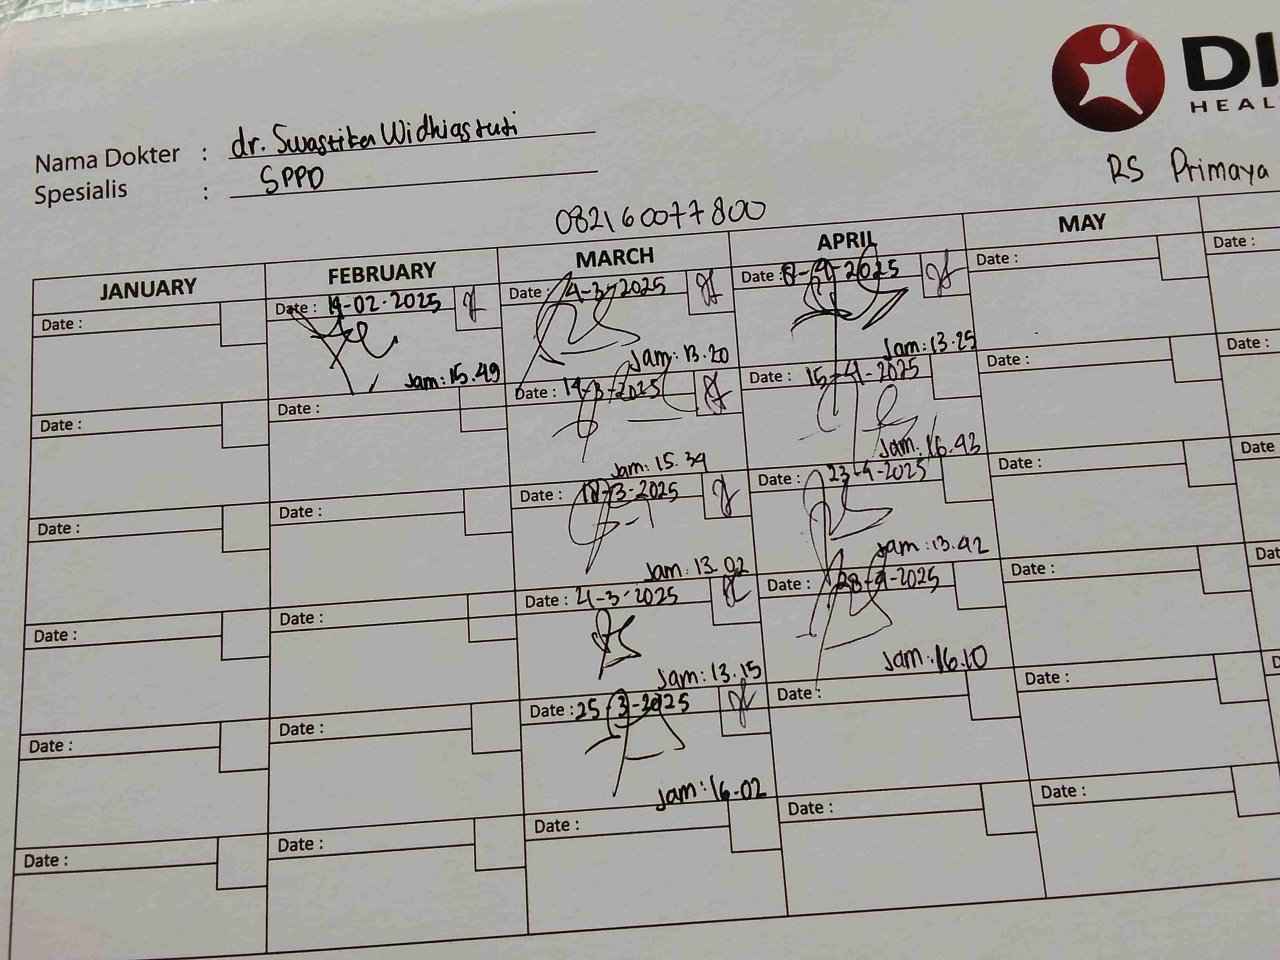 DI
HEAL
Nama Dokter : dr. Swastika Widhiastuti
Spesialis : SPPD
RS Primaya
082160077800
JANUARY FEBRUARY MARCH APRIL MAY
Date : Date : 14-02-2025 Date : 4-3-2025 Date : 8-4-2025 Date : Date :
Jam: 15.49 Jam: 13.20 Jam: 13.25
Date : Date : Date : 14-3-2025 Date : 15-4-2025 Date : Date :
Jam: 15.34 Jam: 16.43
Date : Date : Date : 18-3-2025 Date : 23-4-2025 Date : Date
Jam: 13.02 Jam: 13.42
Date : Date : Date : 21-3-2025 Date : 28-4-2025 Date : Dat
Jam: 13.15 Jam: 16.10
Date : Date : Date : 25-3-2025 Date : Date : D
Jam: 16.02
Date : Date : Date : Date : Date :